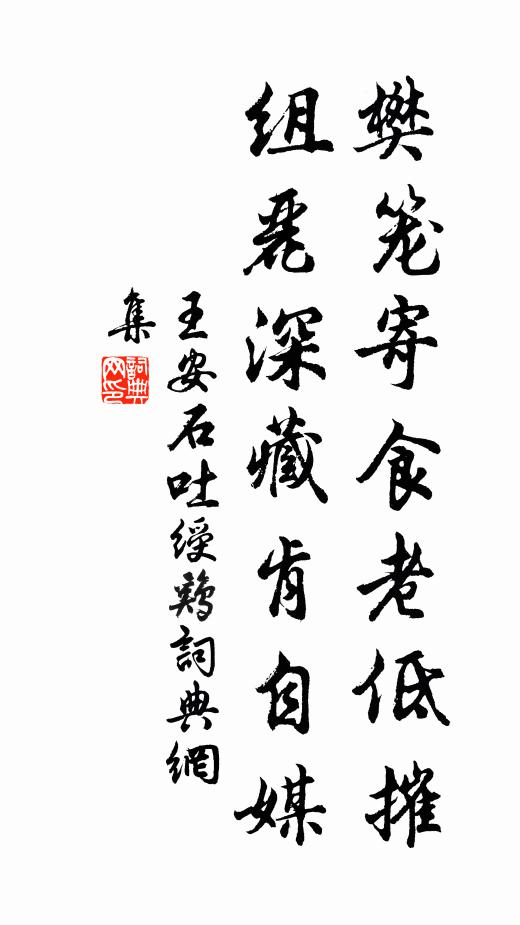 樊笼寄食老低摧
组丽深藏肯自媒
王安石吐绶鸡詞典網
集
詞典
网印